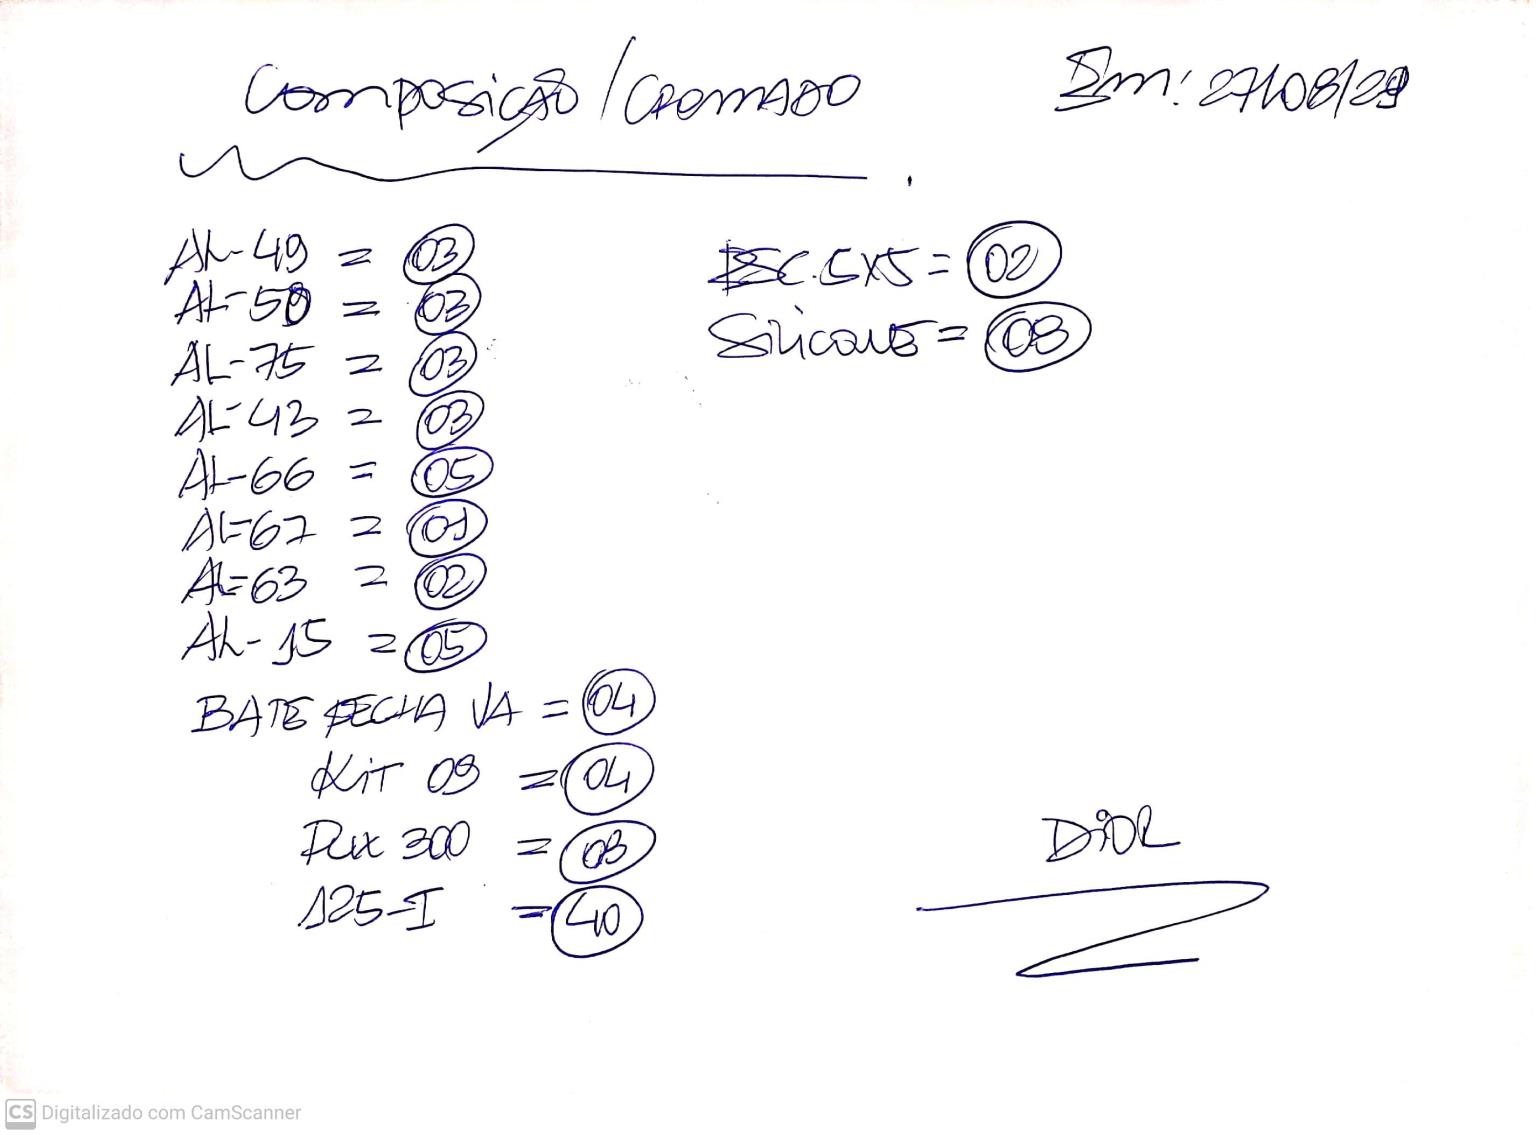 Composição/CROMADO
Em: 27/08/29
AL-49 = 03
AL-59 = 03
AL-75 = 03
AL-43 = 03
AL-66 = 05
AL-67 = 01
AL-63 = 02
AL-15 = 05
BATE FECHA VA = 04
Kit 09 = 04
PUX 300 = 03
125-I = 40
ESC. 5X5 = 02
SILICONE = 03
DIOR
CS Digitalizado com CamScanner